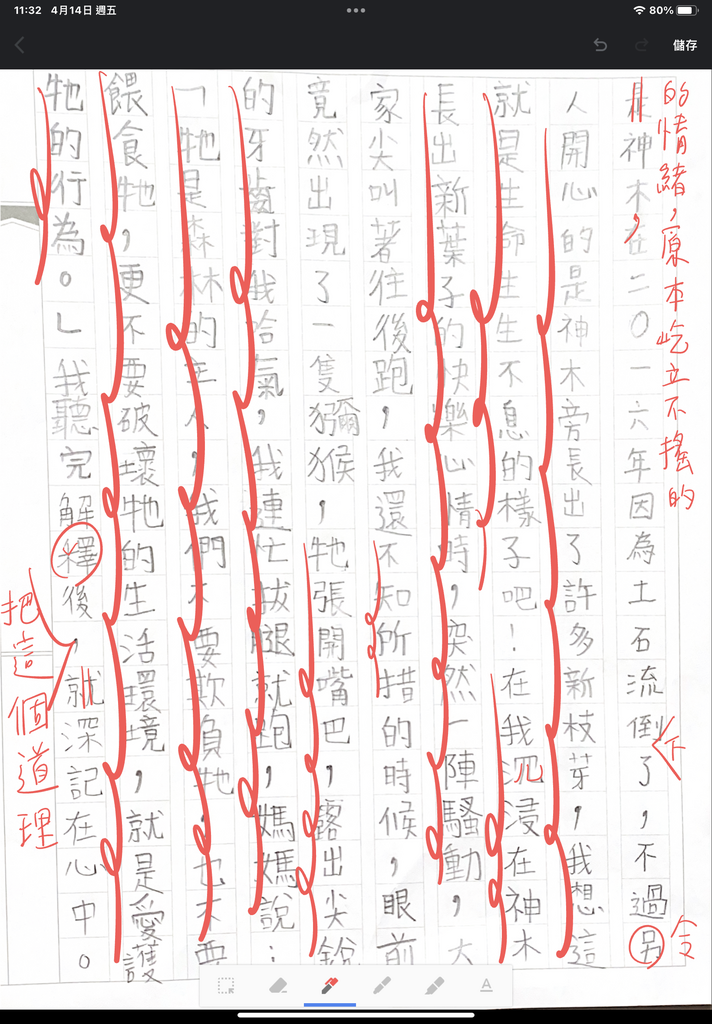 11:32 4月14日 週五
80%
儲存
的情緒，原本屹立不搖的
是神木，在二〇一六年因為土石流倒了，不過另
下
令
人開心的是神木旁長出了許多新枝芽，我想這
就是生命生生不息的樣子吧！在我沉浸在神木
長出新葉子的快樂心情時，突然一陣騷動，大
家尖叫著往後跑，我還不知所措的時候，眼前
竟然出現了一隻獼猴，牠張開嘴巴，露出尖銳
的牙齒對我哈氣，我連忙拔腿就跑，媽媽說：
「牠是森林的主人，我們不要欺負牠，也不要
餵食牠，更不要破壞牠的生活環境，就是愛護
牠的行為。」我聽完解釋後，就深記在心中。
把這個道理
A